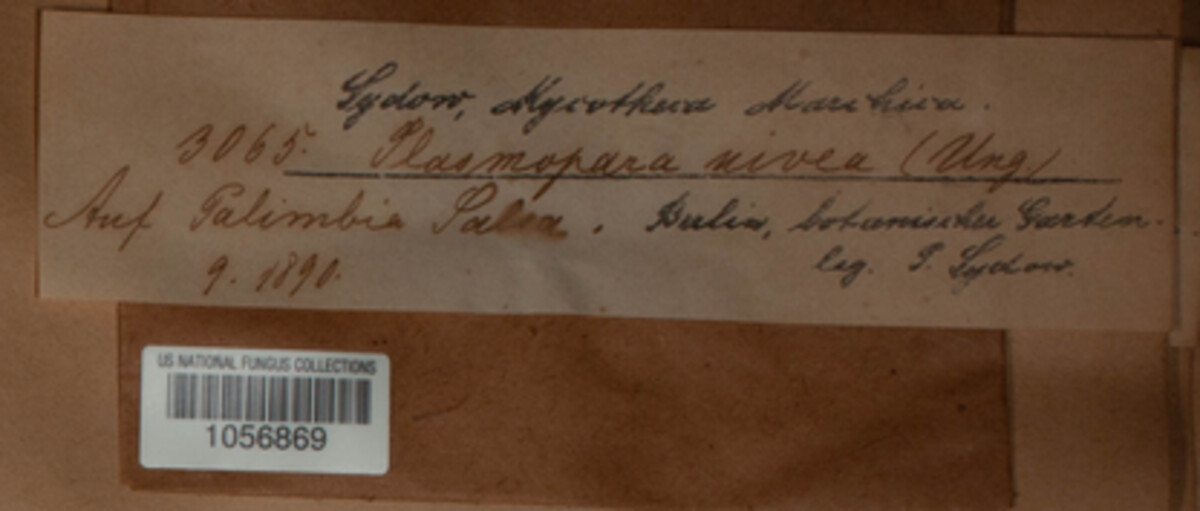 Sydow, Mycotheca Marchica.
3065. Plasmopara nivea (Ung)
Auf Palimbia Salsa. Berlin, botanischer Garten.
9. 1890. leg. P. Sydow.
US NATIONAL FUNGUS COLLECTIONS
1056869